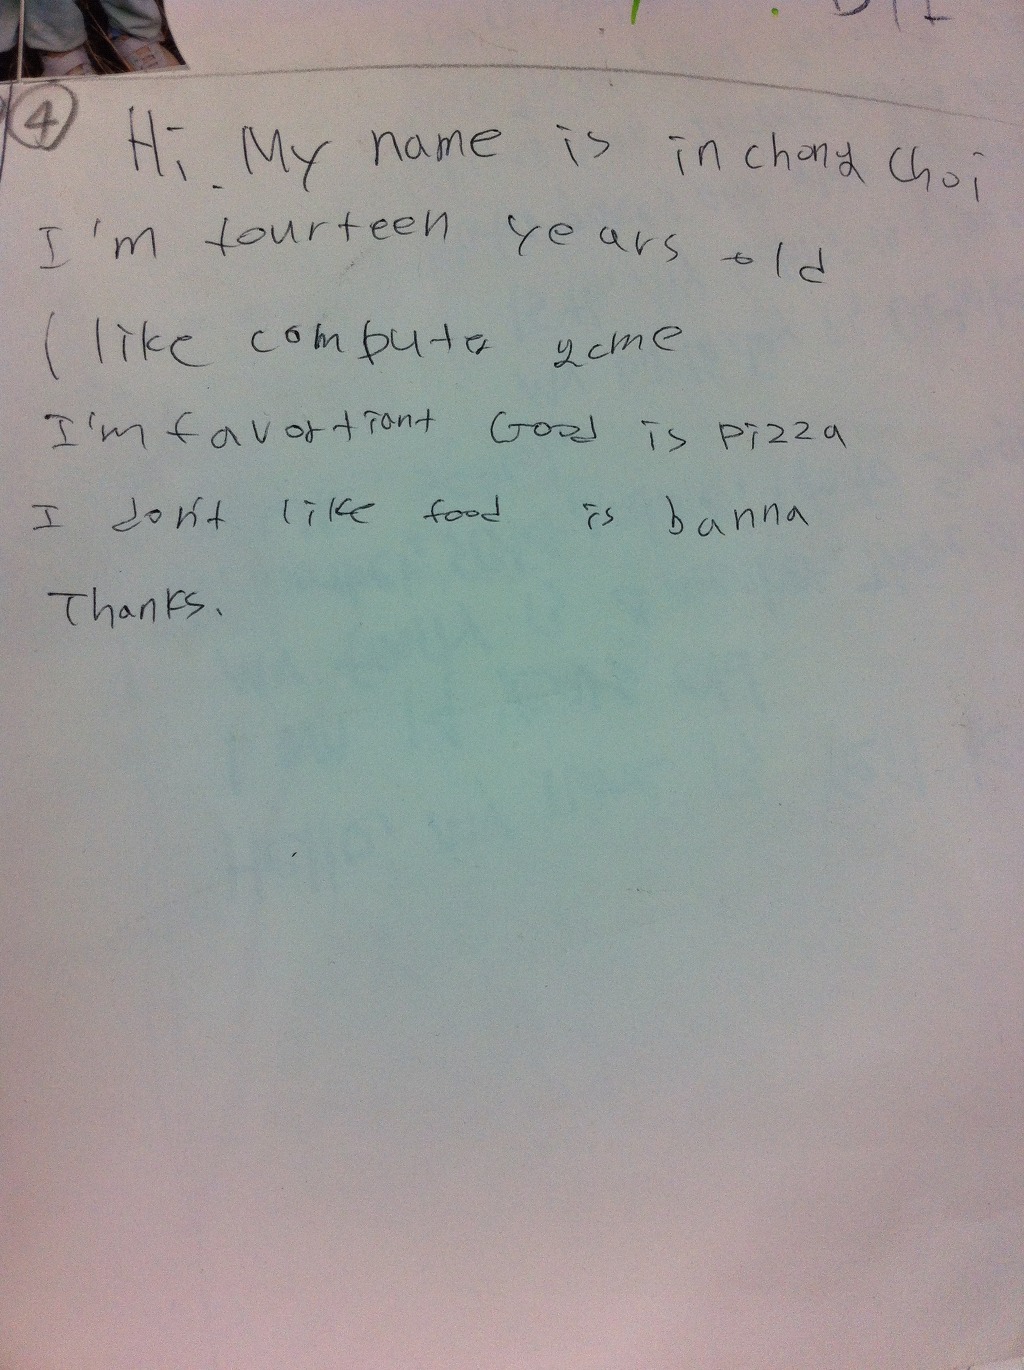 ④ Hi. My name is in chong Choi
I'm fourteen years old
I like computer game
I'm favortiant Good is pizza
I don't like food is banna
Thanks.